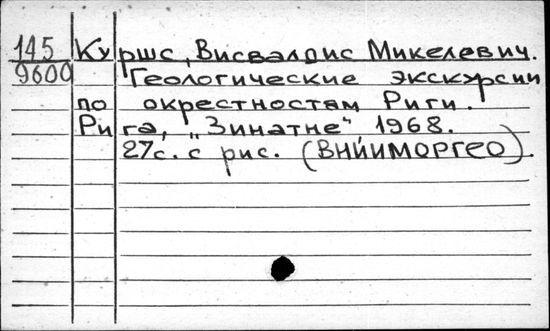 145 Куршс, Висвалдис Микелевич.
9600 Геологические экскурсии
по окрестностям Риги.
Рига, „Зинатне“, 1968.
27с. с рис. (ВНИИМОРГЕО).